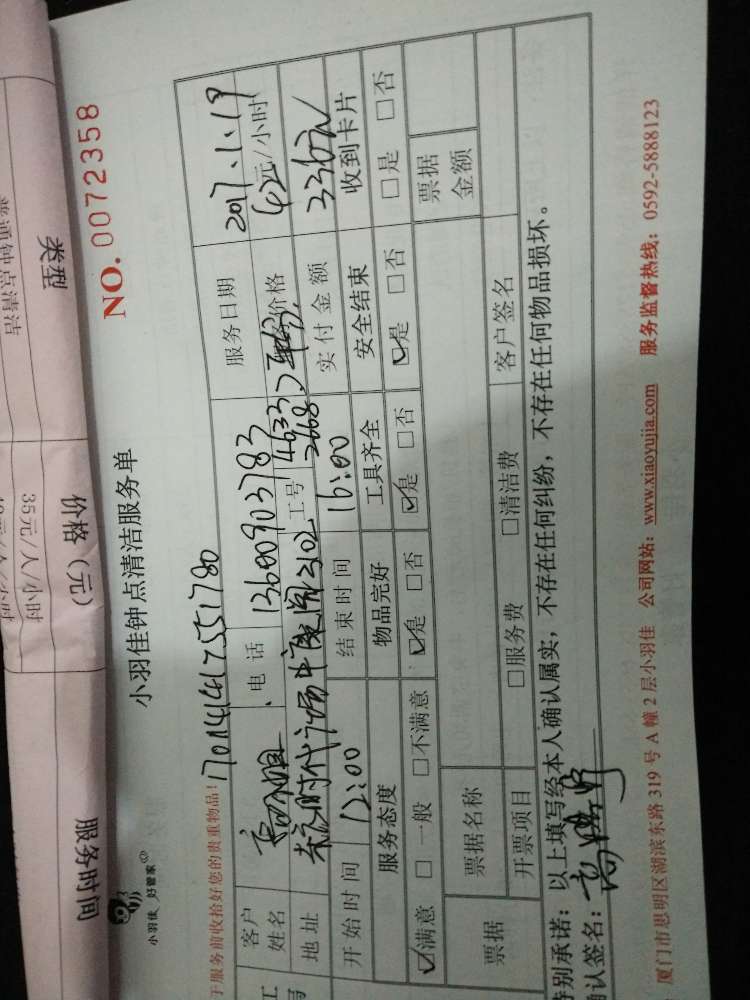 类型
价格（元）
服务时间
普通钟点清洁
35元/人/小时
NO. 0072358
小羽佳 好管家
小羽佳钟点清洁服务单
于服务前收拾好您的贵重物品！
客户姓名
电话 13600903783
服务日期 2017.1.19
地址
工号 4633
2668
价格 42元/小时
开始时间 12:00
结束时间 16:00
实付金额 336元
服务态度
物品完好
工具齐全
安全结束
收到卡片
☑满意 □一般 □不满意
☑是 □否
☑是 □否
☑是 □否
□是 □否
票据
票据名称
票据金额
开票项目
□服务费
□清洁费
客户签名
特别承诺：以上填写经本人确认属实，不存在任何纠纷，不存在任何物品损坏。
认签名：
厦门市思明区湖滨东路 319 号 A 幢 2 层小羽佳 公司网站：www.xiaoyujia.com 服务监督热线：0592-5888123